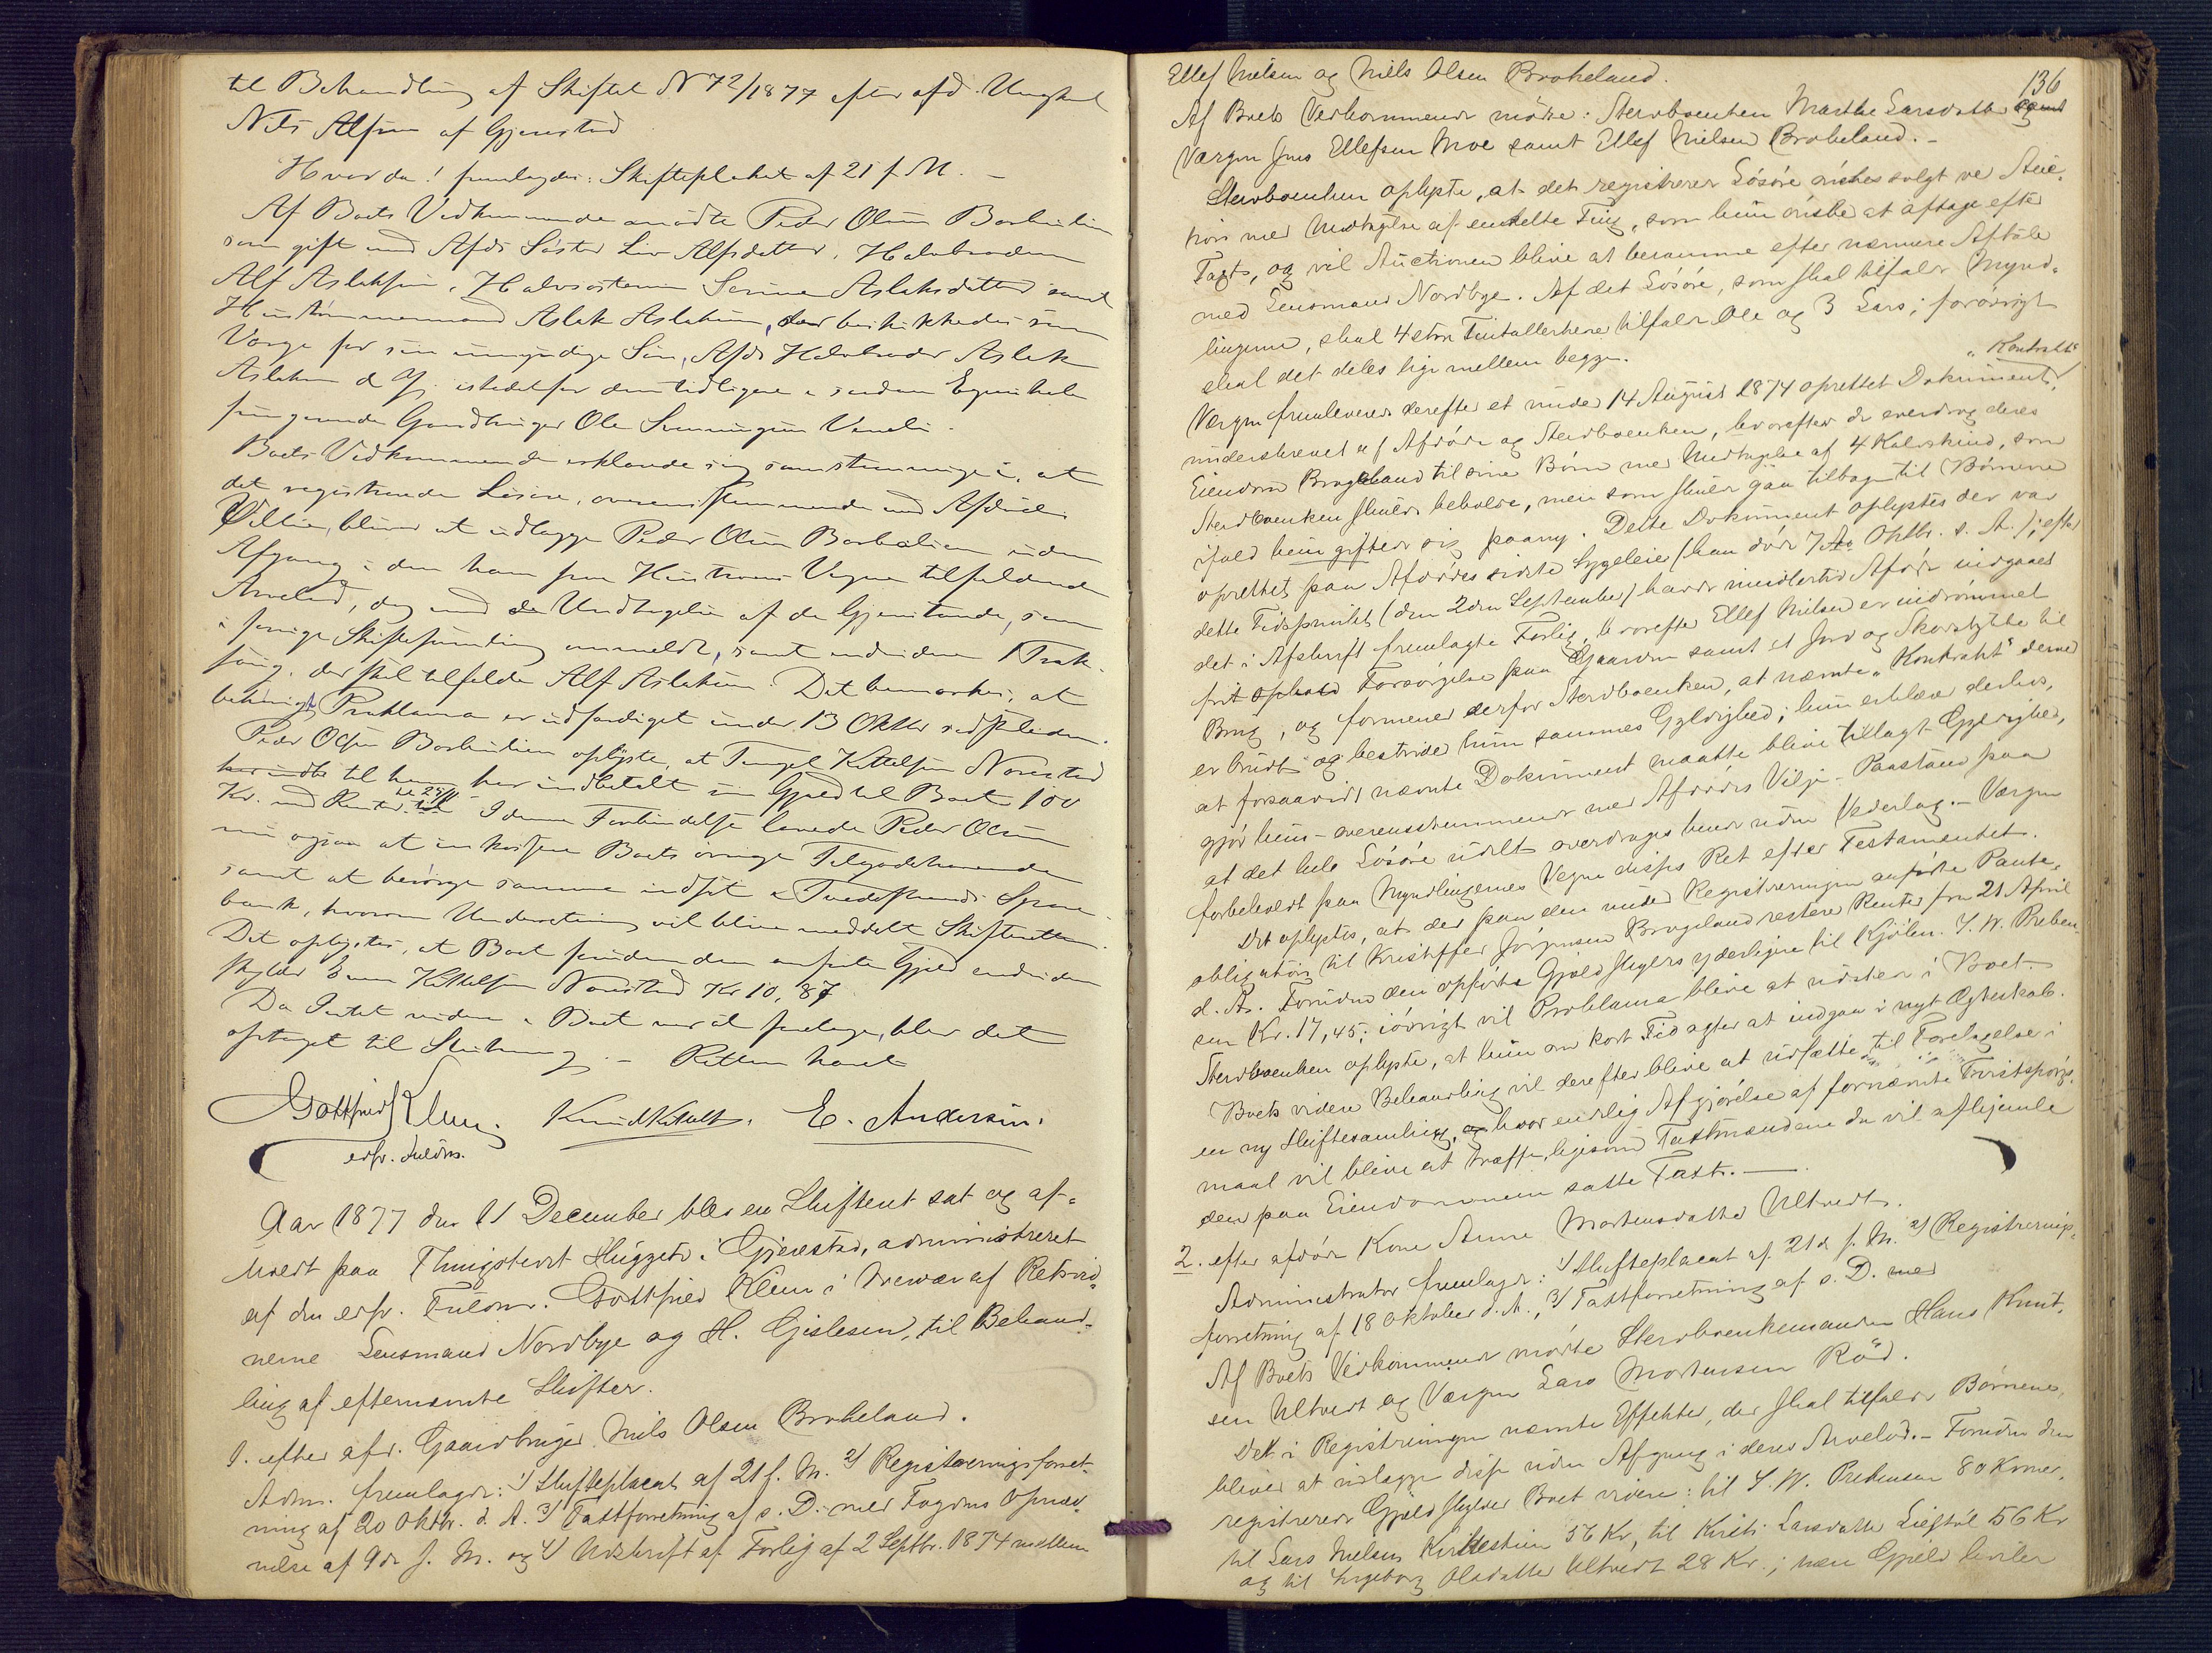 til Behandling af Skiftet N 72/1877 efter afd. Ungkarl
Nils Alfsen af Gjerestad
Hvorda! fremlagdes: Skifteplakat af 21 f. M. –
Af Boets Vedkommende mødte Peder Olsen Barlindlien
som gift med Afds Søster Liv Alfsdatter, Halvbroderen
Alf Aslaksen, Halvsøsteren Serine Aslaksdatter samt
Huustømmermand Aslak Aslaksen, der beskikkedes som
Værge for sin umyndige Søn, Afds Halvbroder Aslak
Aslaksen d Y, istedetfor den tidligere i saadan Egenskab
fungerende Gaardbruger Ole Veneli.
Boets Vedkommende erklærede sig samstemmige i, at
det registrerede Løsøre, overensstemmende med Afdødes
Villie, bliver at udlægge Peder Olsen Barlindlien uden
Afgang i den ham paa Hustrues Vegne tilfaldende
Arvelod, dog med Undtagelse af de Gjenstande, som
i forrige Skiftesamling anmeldt, samt endvidere 1
der skal tilfalde Alf Aslaksen. Det bemærkes, at
behørigt Proklama er udfærdiget under 13 Oktbr sidstleden.
Peder Olsen Barlindlien oplyste, at Tengel Kittelsen Norestad
til ham har indbetalt sin Gjeld til Boet 100
Kr. med Renter. I denne Forbindelse lovede Peder Olsen
nu ogsaa at inkassere Boets øvrige Tilgodehavende
samt at besørge samme indsat i Tvedestrands Spare-
bank, hvorom Underretning vil blive meddelt Skifteretten.
Det oplystes, at Boet foruden den anførte Gjeld endvidere
skylder Even Kittelsen Norestad Kr 10,87
Da Intet videre i Boet var at foretage, blev det
optaget til Slutning. – Retten hævet
Gottfried Klem. Knud Ketilss. E. Andersen.
edsv. Fuldm.
Aar 1877 den 11 December blev en Skifteret sat og af-
holdt paa Thingstedet Huggeto i Gjerestad, administreret
af den edsv. Fuldm. Gottfried Klem i Nærvær af Retsvid-
nerne Lensmand Nordbye og H. Gislesen, til Behand-
ling af efternævnte Skifter.
1. efter afd. Gaardbruger Nils Olsen Brokeland.
Adm. fremlagde: 1/ Skifteplacat af 21 f. M. 2/ Registreringsforret-
ning af 20 Oktbr. d. A. 3/ Taxtforretning af s. D. med Fogdens Opnæv-
nelse af 9de f. M. og 4/ Udskrift af Forlig af 2 Septbr. 1874 mellem
136
Ellef Nielsen og Niels Olsen Brokeland.
Af Boets Vedkommende mødte: Sterboenken Marthe Larsdatter
Værgen Jens Ellefsen Moe samt Ellef Nielsen Brokeland. –
Sterboenken oplyste, at det registrerede Løsøre ønskes solgt ved Auc-
tion med Undtagelse af enkelte Ting, som hun ønsker at aftage efter
Taxt, og vil Auctionen blive at beramme efter nærmere Aftale
med Lensmand Nordbye. Af det Løsøre, som skal tilfalde Mynd-
lingerne, skal 4 store Tintallerkene tilfalde Ole og 3 Lars; forøvrigt
skal det deles lige mellem begge.
Værgen fremleverede derefter et under 14 August 1874 oprettet Dokument, „Kontrakt“
underskrevet af Afdøde og Sterboenken, hvorefter de overdrog deres
Eiendom Brogeland til sine Børn med Undtagelse af 4 Kalvskind, som
Sterboenken skulde beholde, men som skulde gaa tilbage til Børnene
ifald hun gifter sig paany. Dette Dokument oplystes der var
oprettet paa Afdødes sidste Sygeleie (han døde 7 Oktbr. s. A.); efter
dette Tidspunkt (den 2den September) havde imidlertid Afdøde indgaaet
det i Afskrift fremlagte Forlig, hvorefter Ellef Nielsen er indrømmet
frit Ophold Forsørgelse paa Gaarden samt et Jord og Skovstykke til
Brug, og formener derfor Sterboenken, at nævnte „Kontrakt“ derved
er brudt og bestrider hun sammes Gyldighed; hun erklærer derhos,
at forsaavidt nævnte Dokument maatte blive tillagt Gyldighed,
gjør hun – overensstemmende med Afdødes Vilje – Paastand paa
at det hele Løsøre udelt overdrages hende uden Vederlag. – Værgen
forbeholdt paa Myndlingernes Vegne disses Ret efter Testamentet.
Det oplystes, at der paa den under Registreringen anførte Pante-
obligation til Kristoffer Jørgensen Brogeland resterer Renter fra 21 April
d. A. Foruden den opførte Gjæld skyldes yderligere til Kjølen. J. W. Preben-
sen Kr. 17,45; iøvrigt vil Proklama blive at udstede i Boet.
Sterboenken oplyste, at hun om kort Tid agter at indgaa i nyt Ægteskab.
Boets videre Behandling vil derefter blive at udsætte til Foretagelse i
en ny Skiftesamling, hvor endelig Afgjørelse af fornævnte Tvistspørgs-
maal vil blive at træffe, ligesom Taxtmændene da vil afhjemle
den paa Eiendommen satte Taxt. –
2. efter afdøde Kone Anne Mortensdatter Ulltvedt.
Administrator fremlagde: 1/ Skifteplacat af 21d f. M. 2/ Registrerings-
forretning af 18 Oktober d. A., 3/ Taxtforretning af s. D. med
Af Boets Vedkommende mødte Sterboenkemanden Hans Knut-
sen Ulltvedt og Værgen Lars Mortensen Rød.
De i Registreringen nævnte Effekter, der skal tilfalde Børnene,
bliver at udlægge disse uden Afgang i deres Arvelod. – Foruden den
registrerede Gjæld skylder Boet videre: til J. W. Prebensen 80 Kroner,
til Lars Nielsen 56 Kr, til Kirsti Larsdatter 56 Kr
og til Ingeborg Olsdatter Ulltvedt 28 Kr.; Gjæld hviler